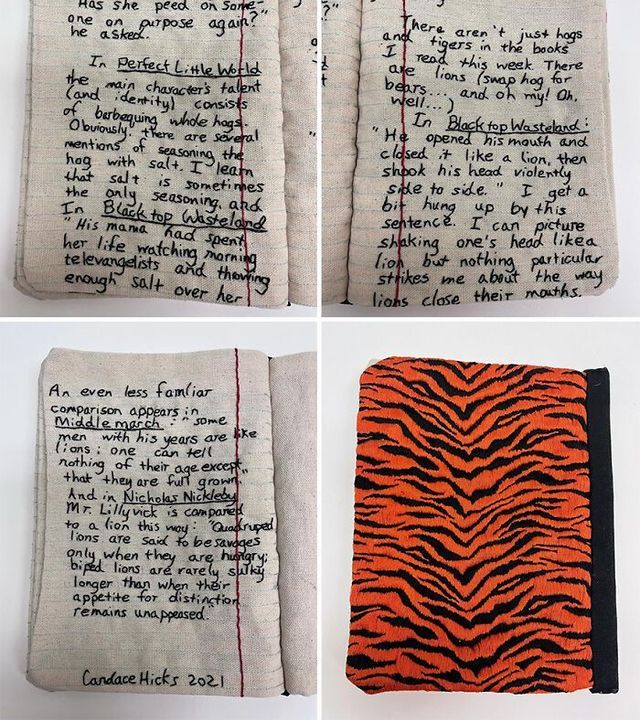 Has she peed on some-
one on purpose again?"
he asked.
In Perfect Little World
the main character's talent
(and identity) consists
of barbequing whole hogs.
Obviously there are several
mentions of seasoning the
hog with salt. I learn
that salt is sometimes
the only seasoning. and
In Blacktop Wasteland
"His mama had spent
her life watching morning
televangelists and throwing
enough salt over her
There aren't just hogs
and tigers in the books
I read this week. There
are lions (swap hog for
bears... and oh my! Oh,
well...)
In Blacktop Wasteland:
"He opened his mouth and
closed it like a lion, then
shook his head violently
side to side." I get a
bit hung up by this
sentence. I can picture
shaking one's head like a
lion but nothing particular
strikes me about the way
lions close their mouths.
An even less familiar
comparison appears in
Middlemarch: "some
men with his years are like
lions; one can tell
nothing of their age except
that they are full grown."
And in Nicholas Nickleby
Mr. Lillyvick is compared
to a lion this way: "Quadruped
lions are said to be savages
only when they are hungry;
biped lions are rarely sulky
longer than when their
appetite for distinction
remains unappeased."
Candace Hicks 2021